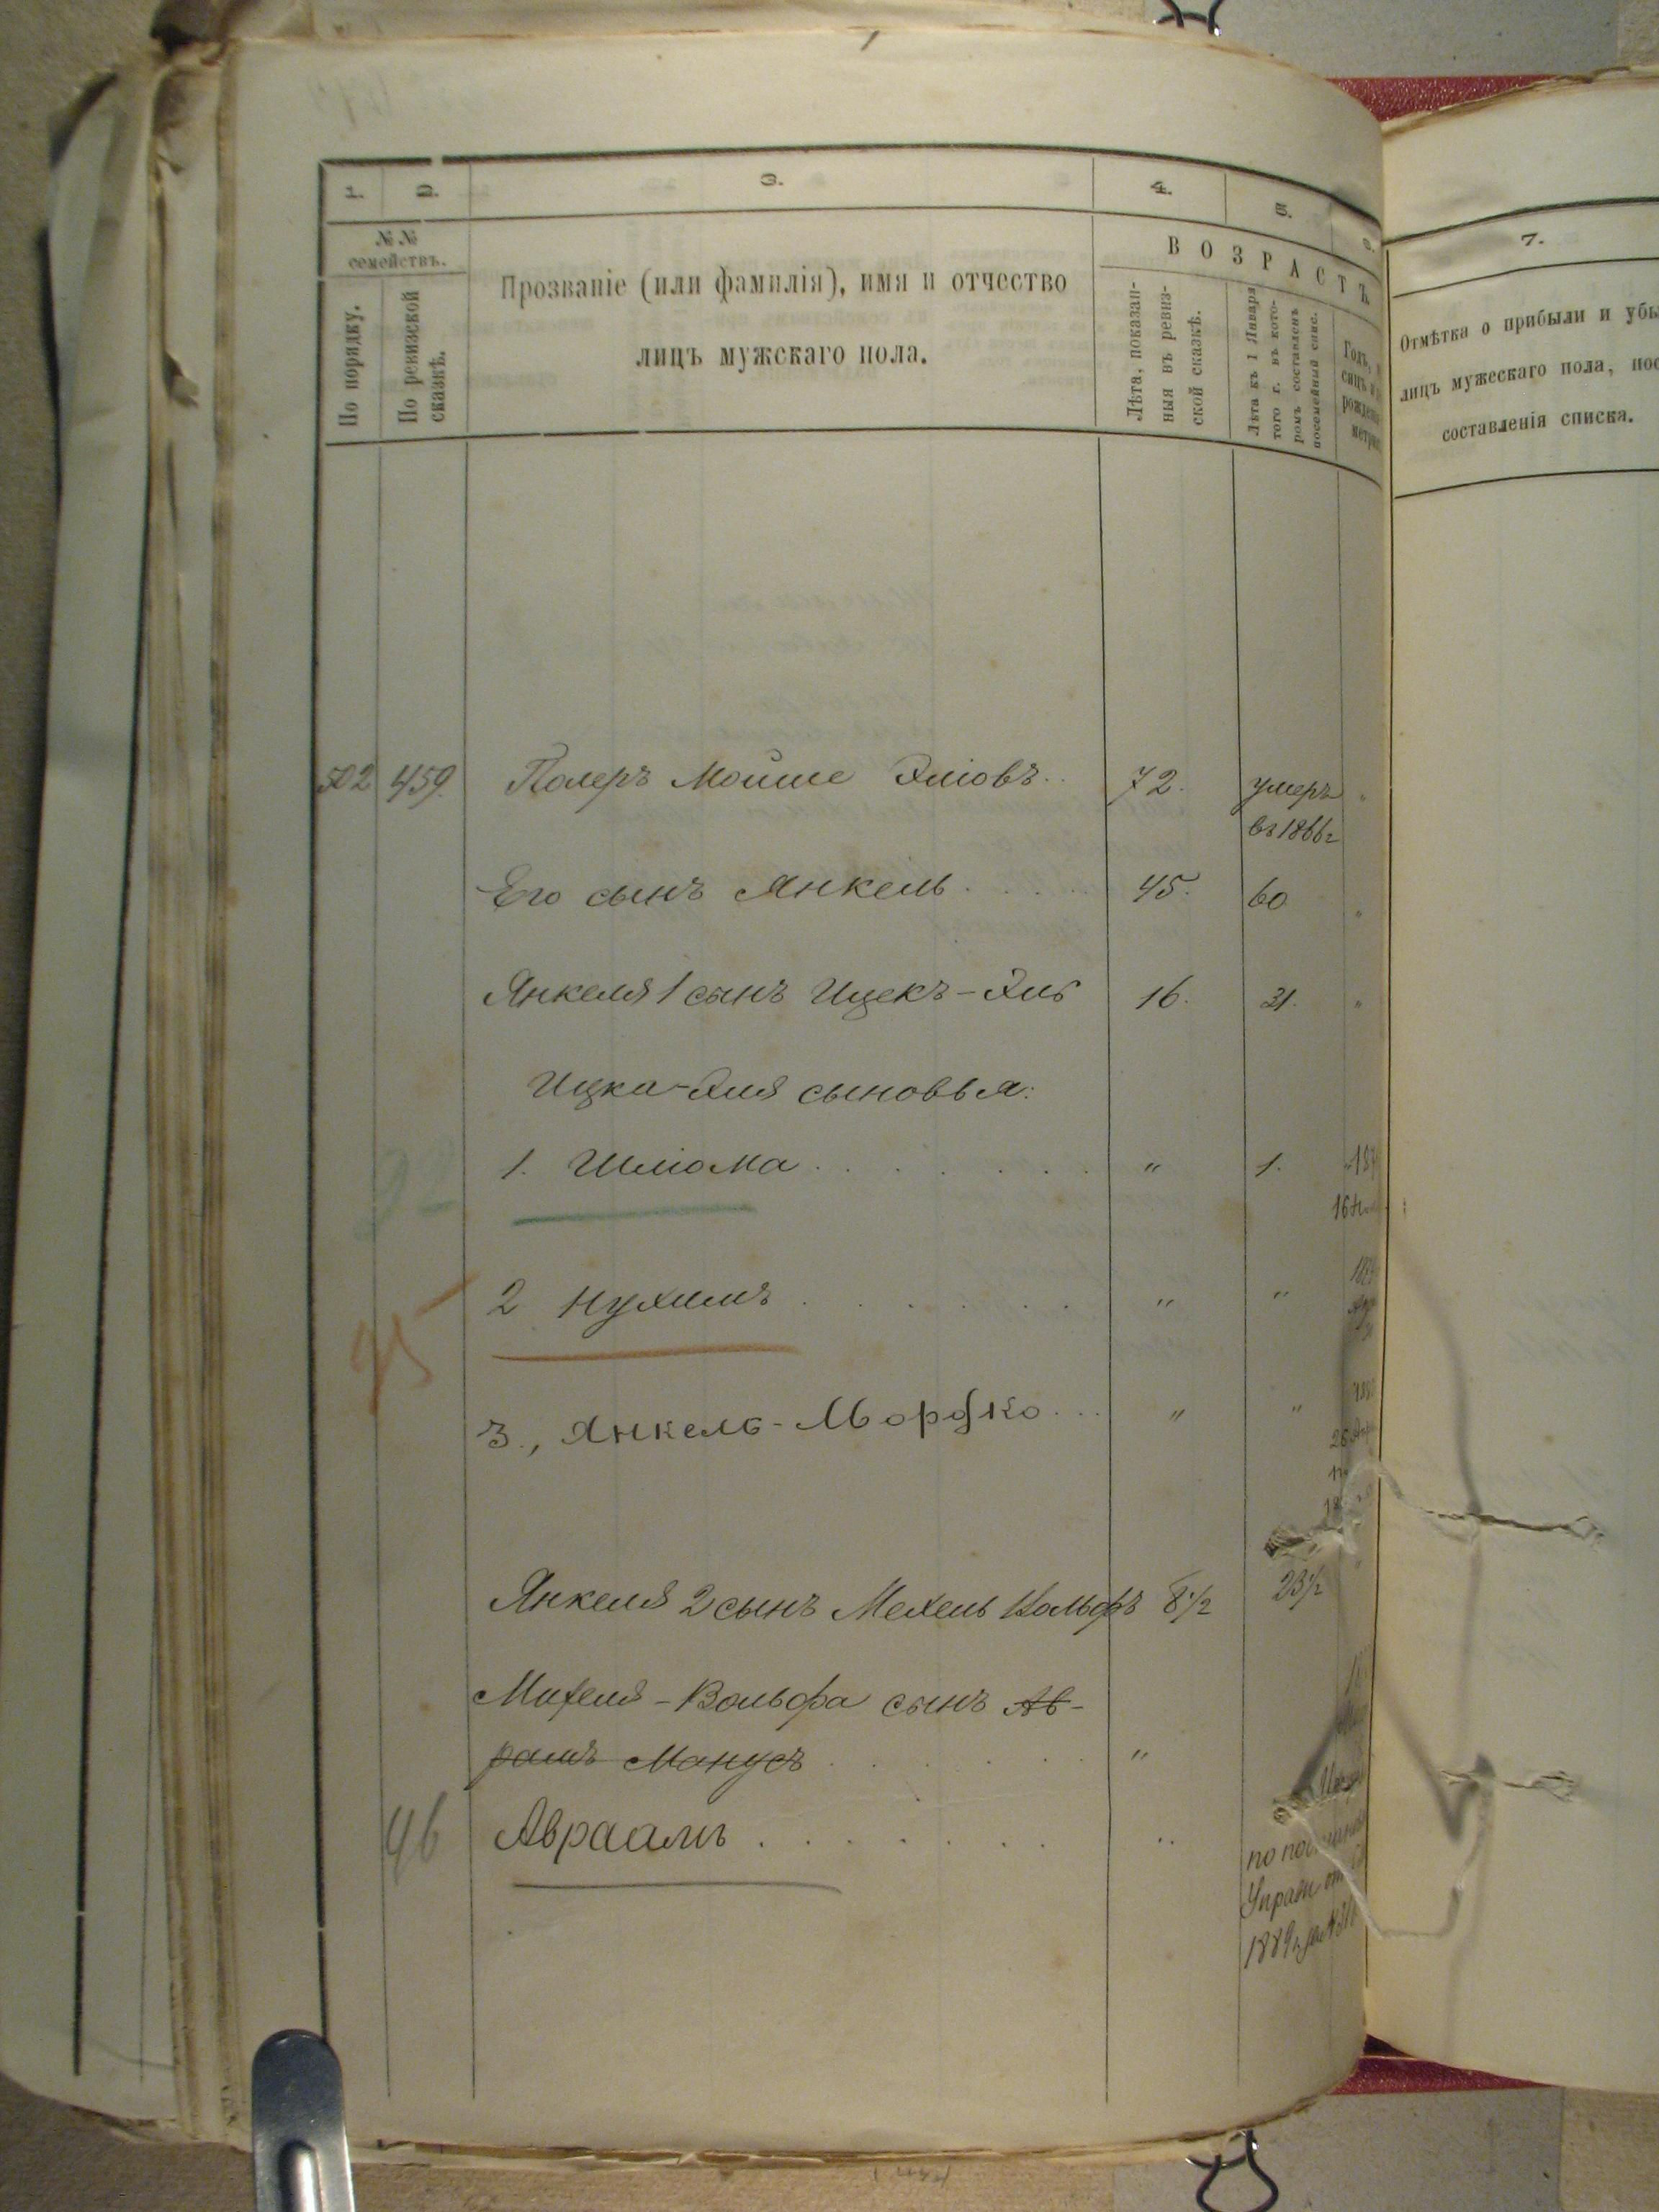 1. 2. 3. 4. 5. 6.
№№ семействъ.
По порядку.
По ревизской сказкѣ.
Прозваніе (или фамилія), имя и отчество
лицъ мужскаго пола.
ВОЗРАСТЪ
Лѣта, показан-
ныя въ ревиз-
ской сказкѣ.
Лѣта къ 1 Января
того г. въ кото-
ромъ составленъ
посемейный спис.
Годъ,
рожден
метри
7.
Отмѣтка о прибыли и убы
лицъ мужескаго пола, пос
составленія списка.
502 459. Полеръ Мойше Эліовъ.. 72. умеръ "
въ 1866 г
Его сынъ Янкель..... 45. 60 "
Янкеля 1 сынъ Ицекъ-Эль 16. 31. "
Ицка-Эля сыновья:
1. Шліома........ " 1. 187
16
2 Нухимъ....... " "
95
3., Янкель-Мордко... " "
Янкеля 2 сынъ Мехель Вольфъ 8 1/2 23 1/2
Михеля-Вольфа сынъ Ав-
рамъ Манусъ....... "
46 Авраамъ........ "
по
1889 г